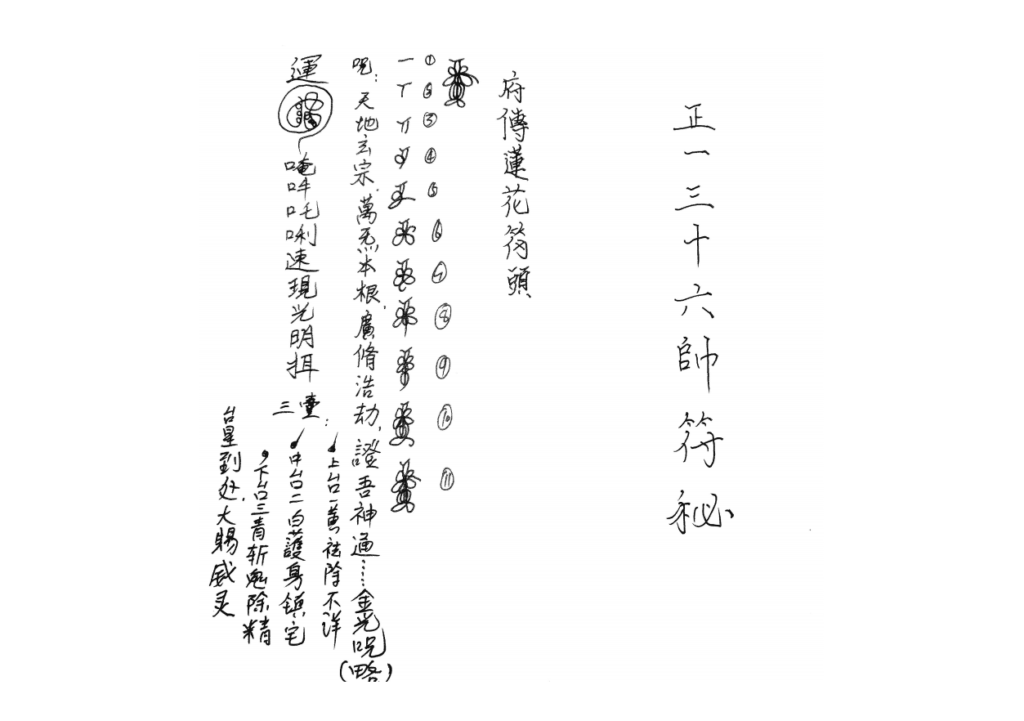 正一三十六帥符秘
府傳蓮花符頭
① ② ③ ④ ⑤ ⑥ ⑦ ⑧ ⑨ ⑩ ⑪
咒：天地玄宗，萬炁本根，廣脩浩劫，證吾神通……金光咒(略)
運
唵吽吒唎速現光明揖
三臺：
上台一黃祛除不洋
中台二白護身鎮宅
下台三青斬鬼除精
台星到处，大賜威灵